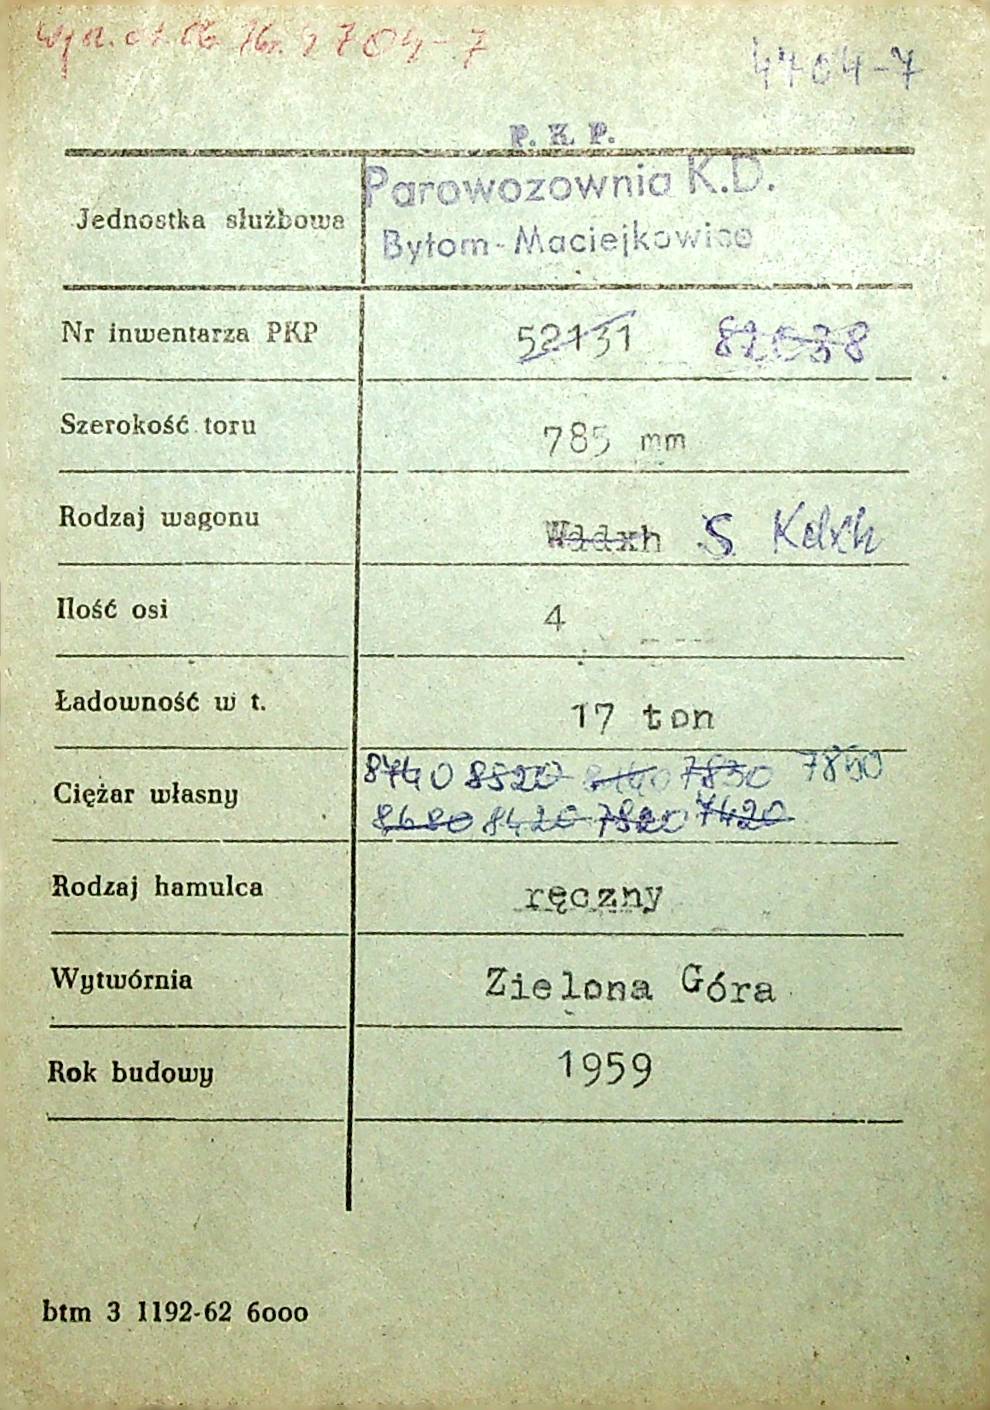 4704-7
P. K. P.
Jednostka służbowa Parowozownia K.D.
Bytom-Maciejkowice
Nr inwentarza PKP 52131 82038
Szerokość toru 785 mm
Rodzaj wagonu Wddxh S Kdxh
Ilość osi 4
Ładowność w t. 17 ton
8740 8520 7830 7850
Ciężar własny
8680 8420 7820 7420
Rodzaj hamulca ręczny
Wytwórnia Zielona Góra
Rok budowy 1959
btm 3 1192-62 6ooo